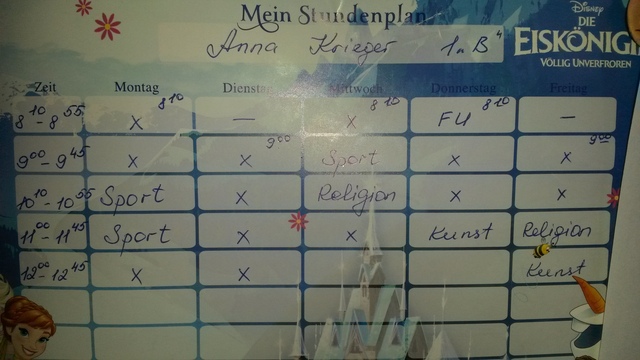 Mein Stundenplan
Disney
DIE
EISKÖNIGIN
VÖLLIG UNVERFROREN
Anna Krieger 1 "B"
Zeit Montag Dienstag Mittwoch Donnerstag Freitag
8¹⁰ - 8⁵⁵ X 8¹⁰ — X 8¹⁰ FU 8¹⁰ —
9⁰⁰ - 9⁴⁵ X X 9⁰⁰ Sport X X 9⁰⁰
10¹⁰ - 10⁵⁵ Sport X Religion X X
11⁰⁰ - 11⁴⁵ Sport X X Kunst Religion
12⁰⁰ - 12⁴⁵ X X Kunst